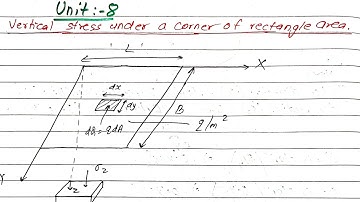 Unit:-8
Vertical stress under a corner of rectangle area.
L
X
dx
dy
B
dQ = q dA
q/m²
Y
σz
z